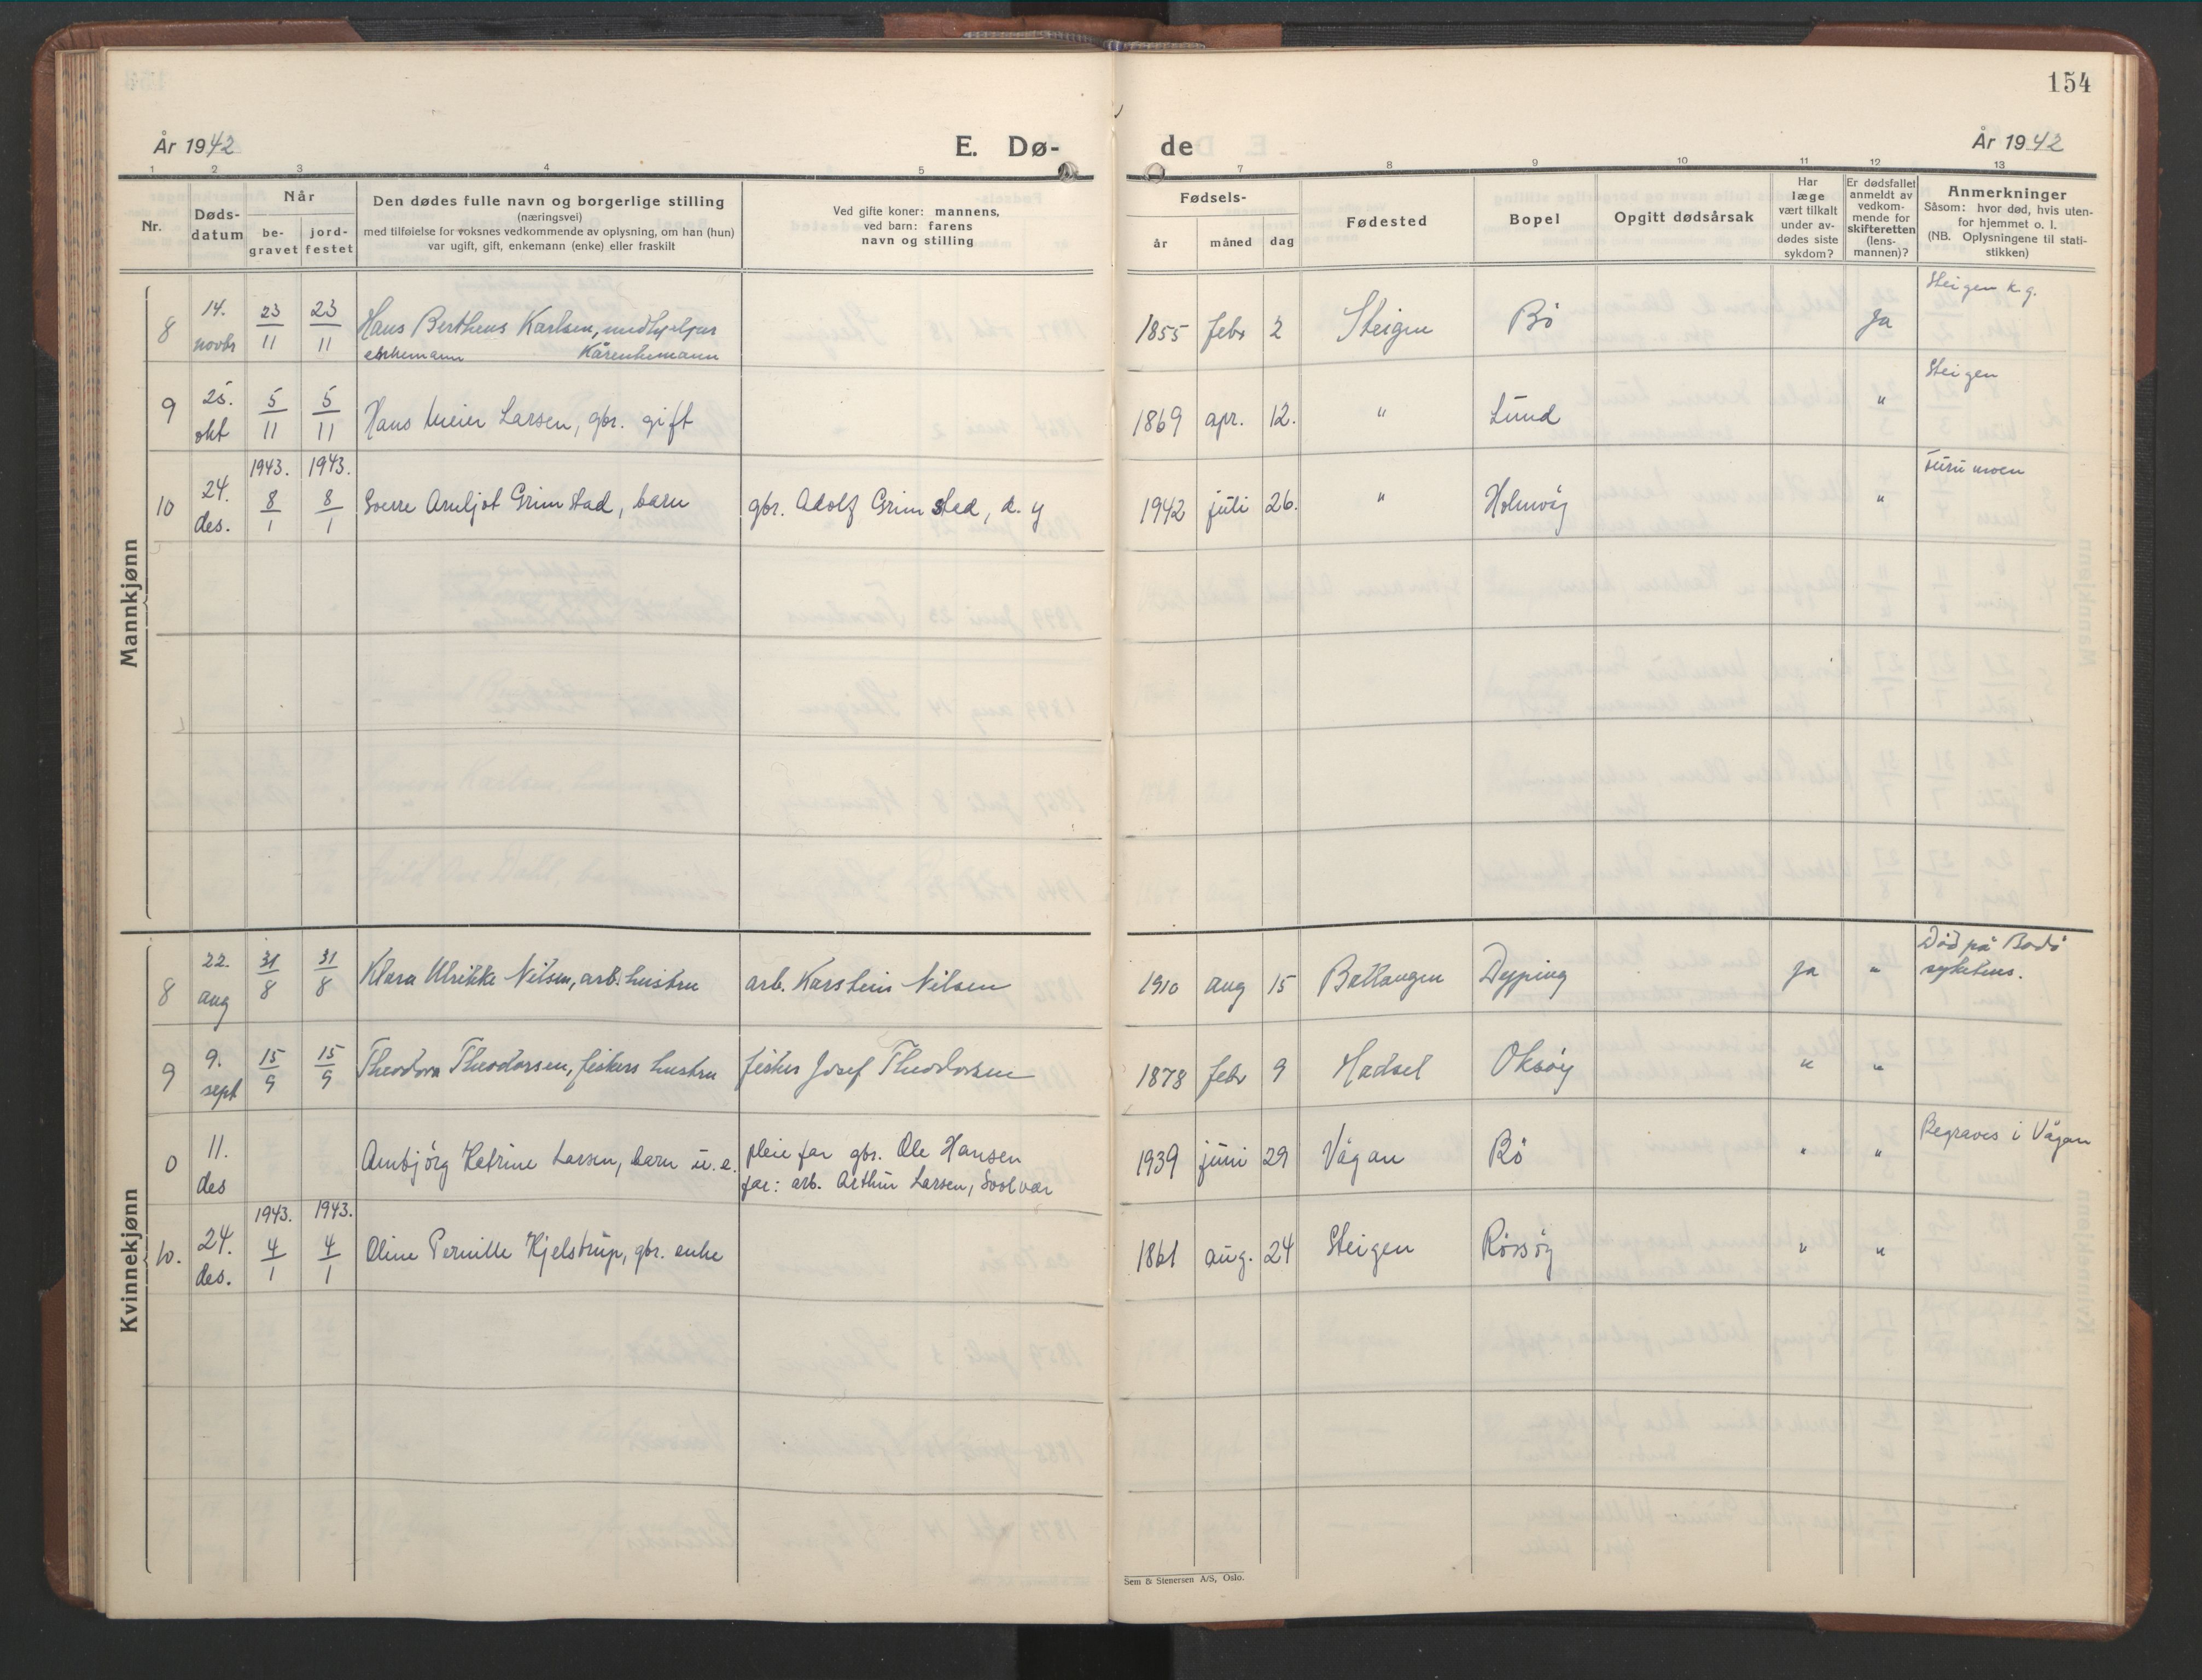 154
År 1942
E. Dø-
de
År 1942
1 2 3 4 5 7 8 9 10 11 12 13
Nr.
Døds-
datum
Når
be-
gravet
jord-
festet
Den dødes fulle navn og borgerlige stilling
(næringsvei)
med tilføielse for voksnes vedkommende av oplysning, om han (hun)
var ugift, gift, enkemann (enke) eller fraskilt
Ved gifte koner: mannens,
ved barn: farens
navn og stilling
Fødsels-
år måned dag
Fødested
Bopel
Opgitt dødsårsak
Har
læge
vært tilkalt
under av-
dødes siste
sykdom?
Er dødsfallet
anmeldt av
vedkom-
mende for
skifteretten
(lens-
mannen)?
Anmerkninger
Såsom: hvor død, hvis uten-
for hjemmet o. l.
(NB. Oplysningene til stati-
stikken)
Mannkjønn
8 14. novbr 23/11 23/11 Hans Bertheus Karlsen,
enkemann Kårenkemann
1855 febr 2 Steigen Bö Ja Steigen k.g.
9 25. okt 5/11 5/11 Hans Meier Larsen, gbr. gift
1869 apr. 12. " Lund " Steigen
10 24. des. 1943. 8/1 1943. 8/1 Sverre Arnljot Grimstad, barn gbr. Adolf Grimstad, d. y
1942 juli 26. " Holmvåg " Furumoen
Kvinnekjønn
8 22. aug 31/8 31/8 Klara Ulrikke Nilsen, arb. hustru arb. Karstein Nilsen
1910 aug 15 Ballangen Dypping Ja " Död på Bodö
sykehus.
9 9. sept 15/9 15/9 Theodora Theodorsen, fiskers hustru fisker Josef Theodorsen
1878 febr 9 Hadsel Oksöy " "
0 11. des Arnbjörg Katrine Larsen, barn u. e. pleie far gbr. Ole Hansen
far: arb. Arthur Larsen, Svolvær
1939 juni 29 Vågan Bö " " Begraves i Vågan
10. 24. des. 1943. 4/1 1943. 4/1 Oline Pernille Kjelstrup, gbr. enke
1861 aug. 24 Steigen Rössöy " "
Sem & Stenersen A/S, Oslo.